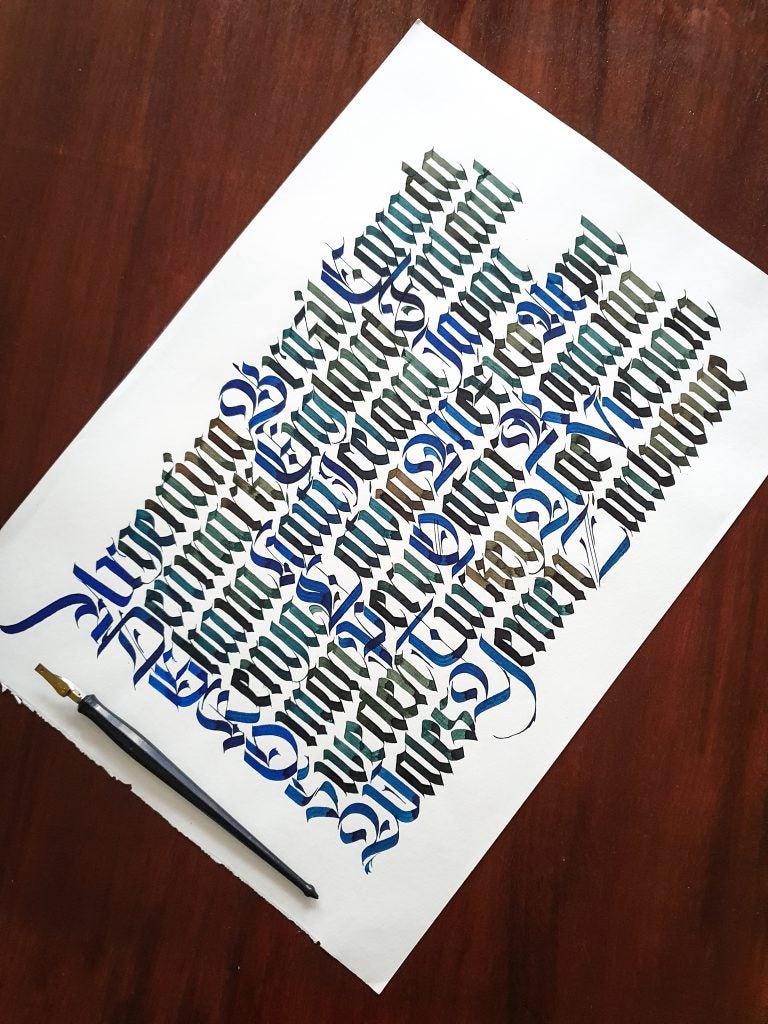 Argentina Brazil Canada
Denmark England Finland
Ghana Haiti Iceland Japan
Kenya Latvia Mexico Nepal
Oman Peru Qatar Romania
Sweden Turkey Uae Vietnam
Wales Yemen Zimbabwe